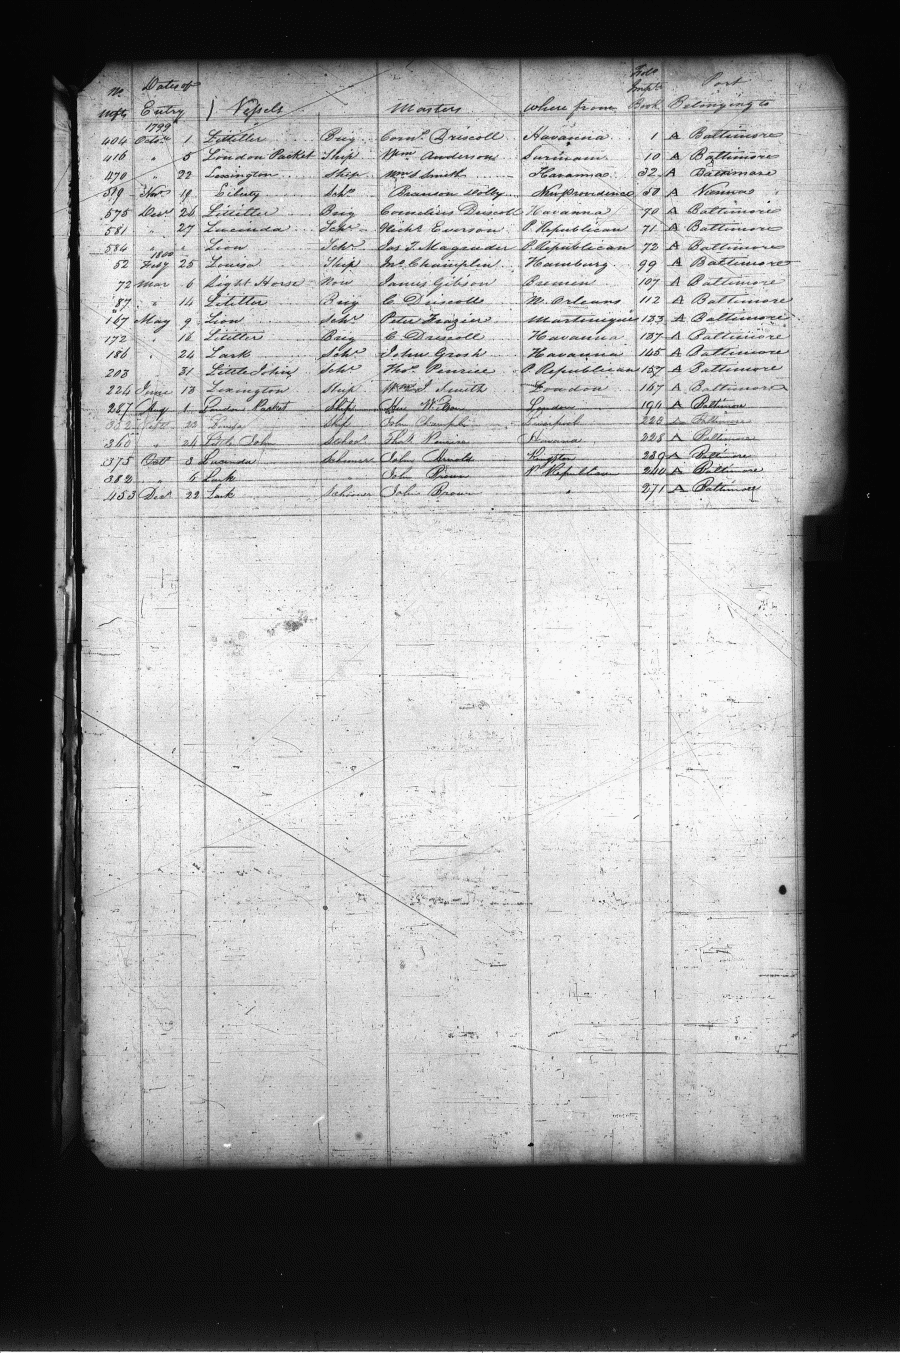 No. Dates of Folo Port
Mfts Entry Vessels Masters where from Impts Book Belonging to
1799
404 Octor. 1 Letitler Brig Cornl. Driscoll Havanna 1 A Baltimore
416 " 5 London Packet Ship Wm Anderson Surinam 10 A Baltimore
470 " 22 Lexington Ship Wm S Smith Havanna 32 A Baltimore
539 Novr. 19 Schr. Branson Dolby New Providence 50 A Vienna
575 Decr. 26 Letitler Brig Cornelius Driscoll Havanna 70 A Baltimore
581 " 27 Lucinda Schr. Richd Everson P. Republican 71 A Baltimore
584 " " Lion Schr. Jas T. Magruder P. Republican 72 A Baltimore
1800
52 Feby 25 Louisa Ship Jno. Champlin Hamburg 99 A Baltimore
72 Mar 6 Light Horse James Gibson Bremen 107 A Baltimore
87 " 14 Letitler Brig C Driscoll N. Orleans 112 A Baltimore
167 May 9 Lion Schr. Peter Frazier Martinique 133 A Baltimore
172 " 16 Letitler Brig C. Driscoll Havanna 137 A Baltimore
186 " 24 Lark Schr. John Grosh Havanna 145 A Baltimore
203 31 Little John Schr. Thos. Penrice P Republican 157 A Baltimore
224 June 13 Lexington Ship Wm S Smith London 167 A Baltimore
287 Aug 1 London Packet Ship Wilson London 194 A Baltimore
352 23 Louisa Ship John Champlin Liverpool 223 Baltimore
360 " 24 Little John School Thos Penrice Havana 228 A Baltimore
375 Oct 3 Lucinda Schooner John Arnold Kingston 239 A Baltimore
382 " 6 Lark " John Brown P Republican 240 A Baltimore
453 Decr 22 Lark Schooner John Brown " 271 A Baltimore